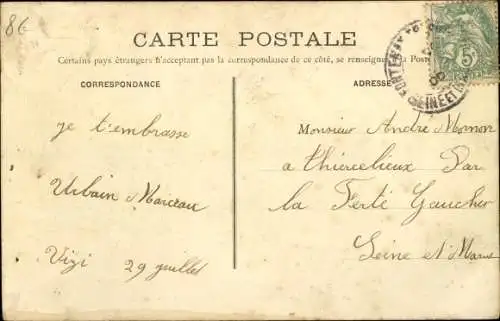 86
CARTE POSTALE
Certains pays étrangers n'acceptant pas la correspondance de ce côté, se renseigner Poste
CORRESPONDANCE
ADRESSE
je t'embrasse
Urbain Marceau
Vizi 29 juillet
Monsieur André Mornon
a Thiercelieux Par
la Ferté Gaucher
Seine et Marne
5